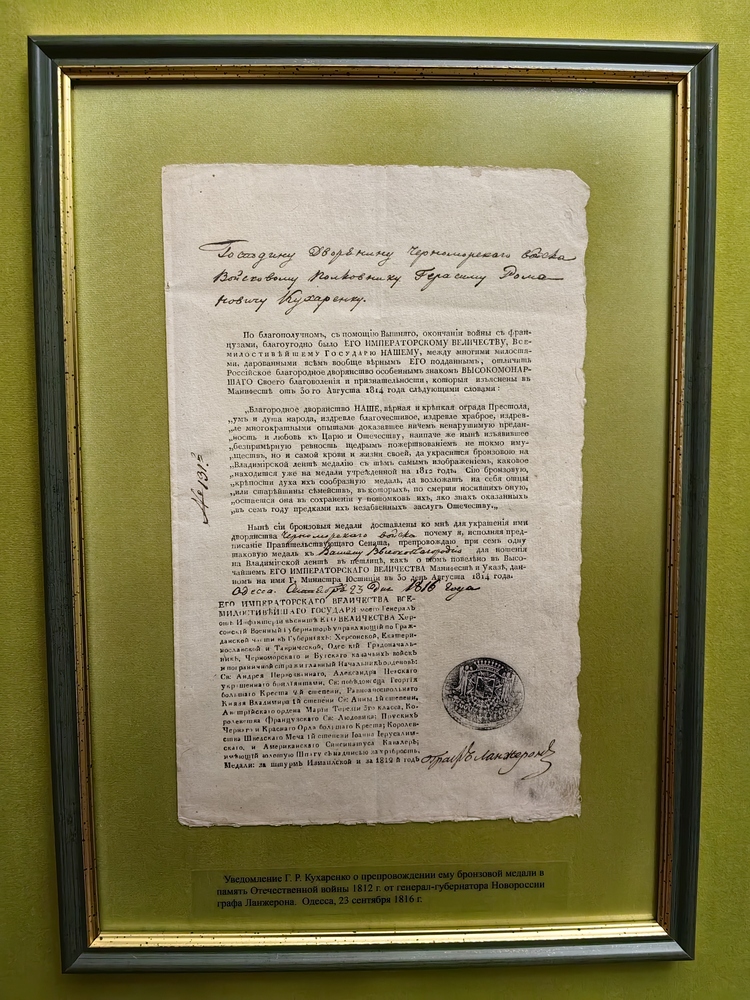 Господину Дворянину Черноморского войска
Войсковому Полковнику Герасиму Рома
новичу Кухаренку.
По благополучномъ, съ помощію Вышняго, окончаніи войны съ фран-
цузами, благоугодно было ЕГО ИМПЕРАТОРСКОМУ ВЕЛИЧЕСТВУ, ВСЕ-
МИЛОСТИВѢЙШЕМУ ГОСУДАРЮ НАШЕМУ, между многими милостя-
ми, дарованными всѣмъ вообще вѣрнымъ ЕГО подданнымъ, отличить
Россійское благородное дворянство особеннымъ знакомъ ВЫСОКОМОНАР-
ШАГО Своего благоволенія и признательности, которыя изъяснены въ
Манифестѣ отъ 30го Августа 1814 года слѣдующими словами:
„Благородное дворянство НАШЕ, вѣрная и крѣпкая ограда Престола,
„умъ и душа народа, издревле благочестивое, издревле храброе, издрев-
„ле многократными опытами доказавшее ничемъ ненарушимую предан-
„ность и любовь къ Царю и Отечеству, наипаче же нынѣ изъявившее
„безпримѣрную ревность щедрымъ пожертвованіемъ не токмо иму-
„ществъ, но и самой крови и жизни своей, да украсится бронзовою на
„Владимирской лентѣ медалію съ тѣмъ самымъ изображеніемъ, каковое
„находится уже на медали учрежденной на 1812 годъ. Сію бронзовую,
„крѣпости духа ихъ сообразную медаль, да возложатъ на себя отцы
„или старѣйшины семействъ, въ которыхъ, по смерти носившихъ оную,
„остается она въ сохраненіи у потомковъ ихъ, яко знакъ оказанныхъ
„въ семъ году предками ихъ незабвенныхъ заслугъ Отечеству.„
№ 131
Нынѣ сіи бронзовыя медали доставлены ко мнѣ для украшенія ими
дворянства Черноморского войска почему я, исполняя пред-
писаніе Правительствующаго Сената, препровождаю при семъ одну
таковую медаль къ Вашему Высокоблагородію для ношенія
на Владимирской лентѣ въ петлицѣ, какъ о томъ повелѣно въ Высо-
чайшемъ ЕГО ИМПЕРАТОРСКАГО ВЕЛИЧЕСТВА Манифестѣ и Указѣ, дан-
номъ на имя Г. Министра Юстиціи въ 30 день Августа 1814 года.
Одесса. Сентября 23 дня 1816 года
ЕГО ИМПЕРАТОРСКАГО ВЕЛИЧЕСТВА ВСЕ-
МИЛОСТИВѢЙШАГО ГОСУДАРЯ моего Генералъ
отъ Инфантеріи въ свитѣ ЕГО ВЕЛИЧЕСТВА Хер-
сонскій Военный Губернаторъ управляющій по Граж-
данской части въ Губерніяхъ: Херсонской, Екатери-
нославской и Таврической, Одесскій Градоначаль-
никъ, Черноморскаго и Бугскаго казачьихъ войскъ
и пограничной стражи главный Начальникъ Орденовъ:
Св: Андрея Первозваннаго, Александра Невскаго
украшеннаго брилліантами, Св: побѣдоносца Георгія
большаго Креста 2й степени, Равноапостольнаго
Князя Владимира 1й степени Св: Анны 1й степени,
Австрійскаго ордена Маріи Терезіи 3го класса, Ко-
ролевства Французскаго Св: Людовика; Прусскихъ
Чернаго и Краснаго Орла большаго Креста; Королев-
ства Шведскаго Меча 1й степени Іоанна Іерусалим-
скаго, и Американскаго Синсината Кавалеръ;
имѣющій золотую Шпагу съ надписью за храбрость,
Медали: за штурмъ Измаилской и за 1812й годъ
Графъ Ланжеронъ
Уведомление Г. Р. Кухаренко о препровождении ему бронзовой медали в
память Отечественной войны 1812 г. от генерал-губернатора Новороссии
графа Ланжерона. Одесса, 23 сентября 1816 г.